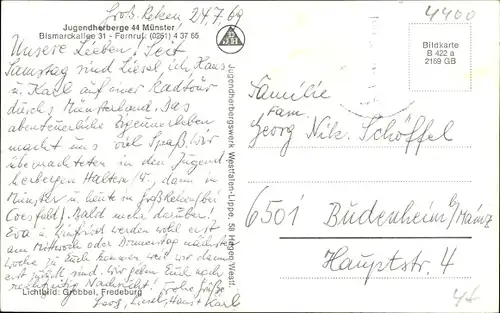 Groß-Reken, 24.7.69
Jugendherberge 44 Münster
Bismarckallee 31 - Fernruf: (0251) 4 37 65
Unsere Lieben! Seit
Samstag sind Liesel, ich, Hans
u. Karl auf einer Radtour
durchs Münsterland. Das
abenteuerliche Zigeunerleben
macht uns viel Spaß. Wir
übernachteten in den Jugend-
herbergen Haltern/W., dann in
Münster u. heute in Groß Reken bei
Coesfeld. Bald mehr darüber!
Eva u. Winfried werden wohl erst
am Mittwoch oder Donnerstag nächster
Woche zu Euch kommen, weil wir dann
erst zurück sind. Wir geben Euch noch
rechtzeitig Nachricht! Frohe Grüße
Georg, Liesel, Hans + Karl
Lichtbild: Gröbbel, Fredeburg
Jugendherbergswerk Westfalen-Lippe, 58 Hagen/Westf.
DJH
4400
Bildkarte
B 422 a
2169 GB
Familie
Fam.
Georg Nik. Schöffel
6501 Budenheim b/Mainz
Hauptstr. 4